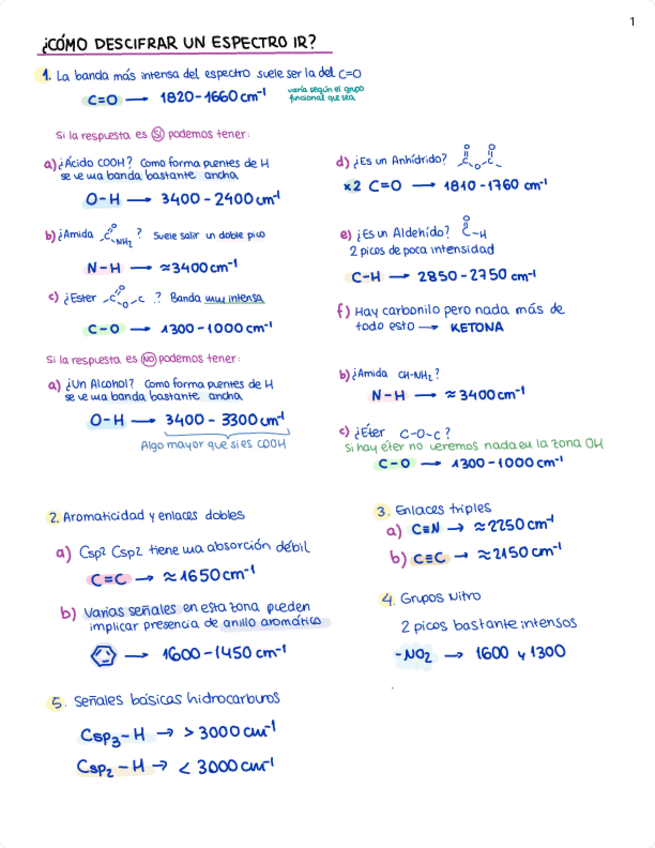 1
¿CÓMO DESCIFRAR UN ESPECTRO IR?
1. La banda más intensa del espectro suele ser la del C=O
C=O → 1820-1660 cm⁻¹
varía según el grupo
funcional que sea
Si la respuesta es SÍ podemos tener:
a) ¿Ácido COOH? Como forma puentes de H
se ve una banda bastante ancha
O-H → 3400-2400 cm⁻¹
b) ¿Amida -C(=O)NH₂? Suele salir un doble pico
N-H → ≈3400 cm⁻¹
c) ¿Ester -C(=O)O-C? Banda muy intensa
C-O → 1300-1000 cm⁻¹
d) ¿Es un Anhídrido? O O C O C
x2 C=O → 1810-1760 cm⁻¹
e) ¿Es un Aldehído? O C-H
2 picos de poca intensidad
C-H → 2850-2750 cm⁻¹
f) Hay carbonilo pero nada más de
todo esto → KETONA
Si la respuesta es NO podemos tener:
a) ¿Un Alcohol? Como forma puentes de H
se ve una banda bastante ancha
O-H → 3400-3300 cm⁻¹
Algo mayor que si es COOH
b) ¿Amida CH-NH₂?
N-H → ≈3400 cm⁻¹
c) ¿Éter C-O-C?
Si hay éter no veremos nada en la zona OH
C-O → 1300-1000 cm⁻¹
2. Aromaticidad y enlaces dobles
a) Csp² Csp2 tiene una absorción débil
C=C → ≈1650 cm⁻¹
b) Varias señales en esta zona pueden
implicar presencia de anillo aromático
→ 1600-1450 cm⁻¹
3. Enlaces triples
a) C≡N → ≈2250 cm⁻¹
b) C≡C → ≈2150 cm⁻¹
4. Grupos Nitro
2 picos bastante intensos
-NO₂ → 1600 y 1300
5. Señales básicas hidrocarburos
Csp₃-H → > 3000 cm⁻¹
Csp₂-H → < 3000 cm⁻¹